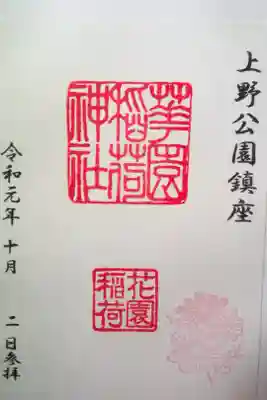 上野公園鎮座
華園
稲荷
神社
花園
稲荷
令和元年十月二日参拝